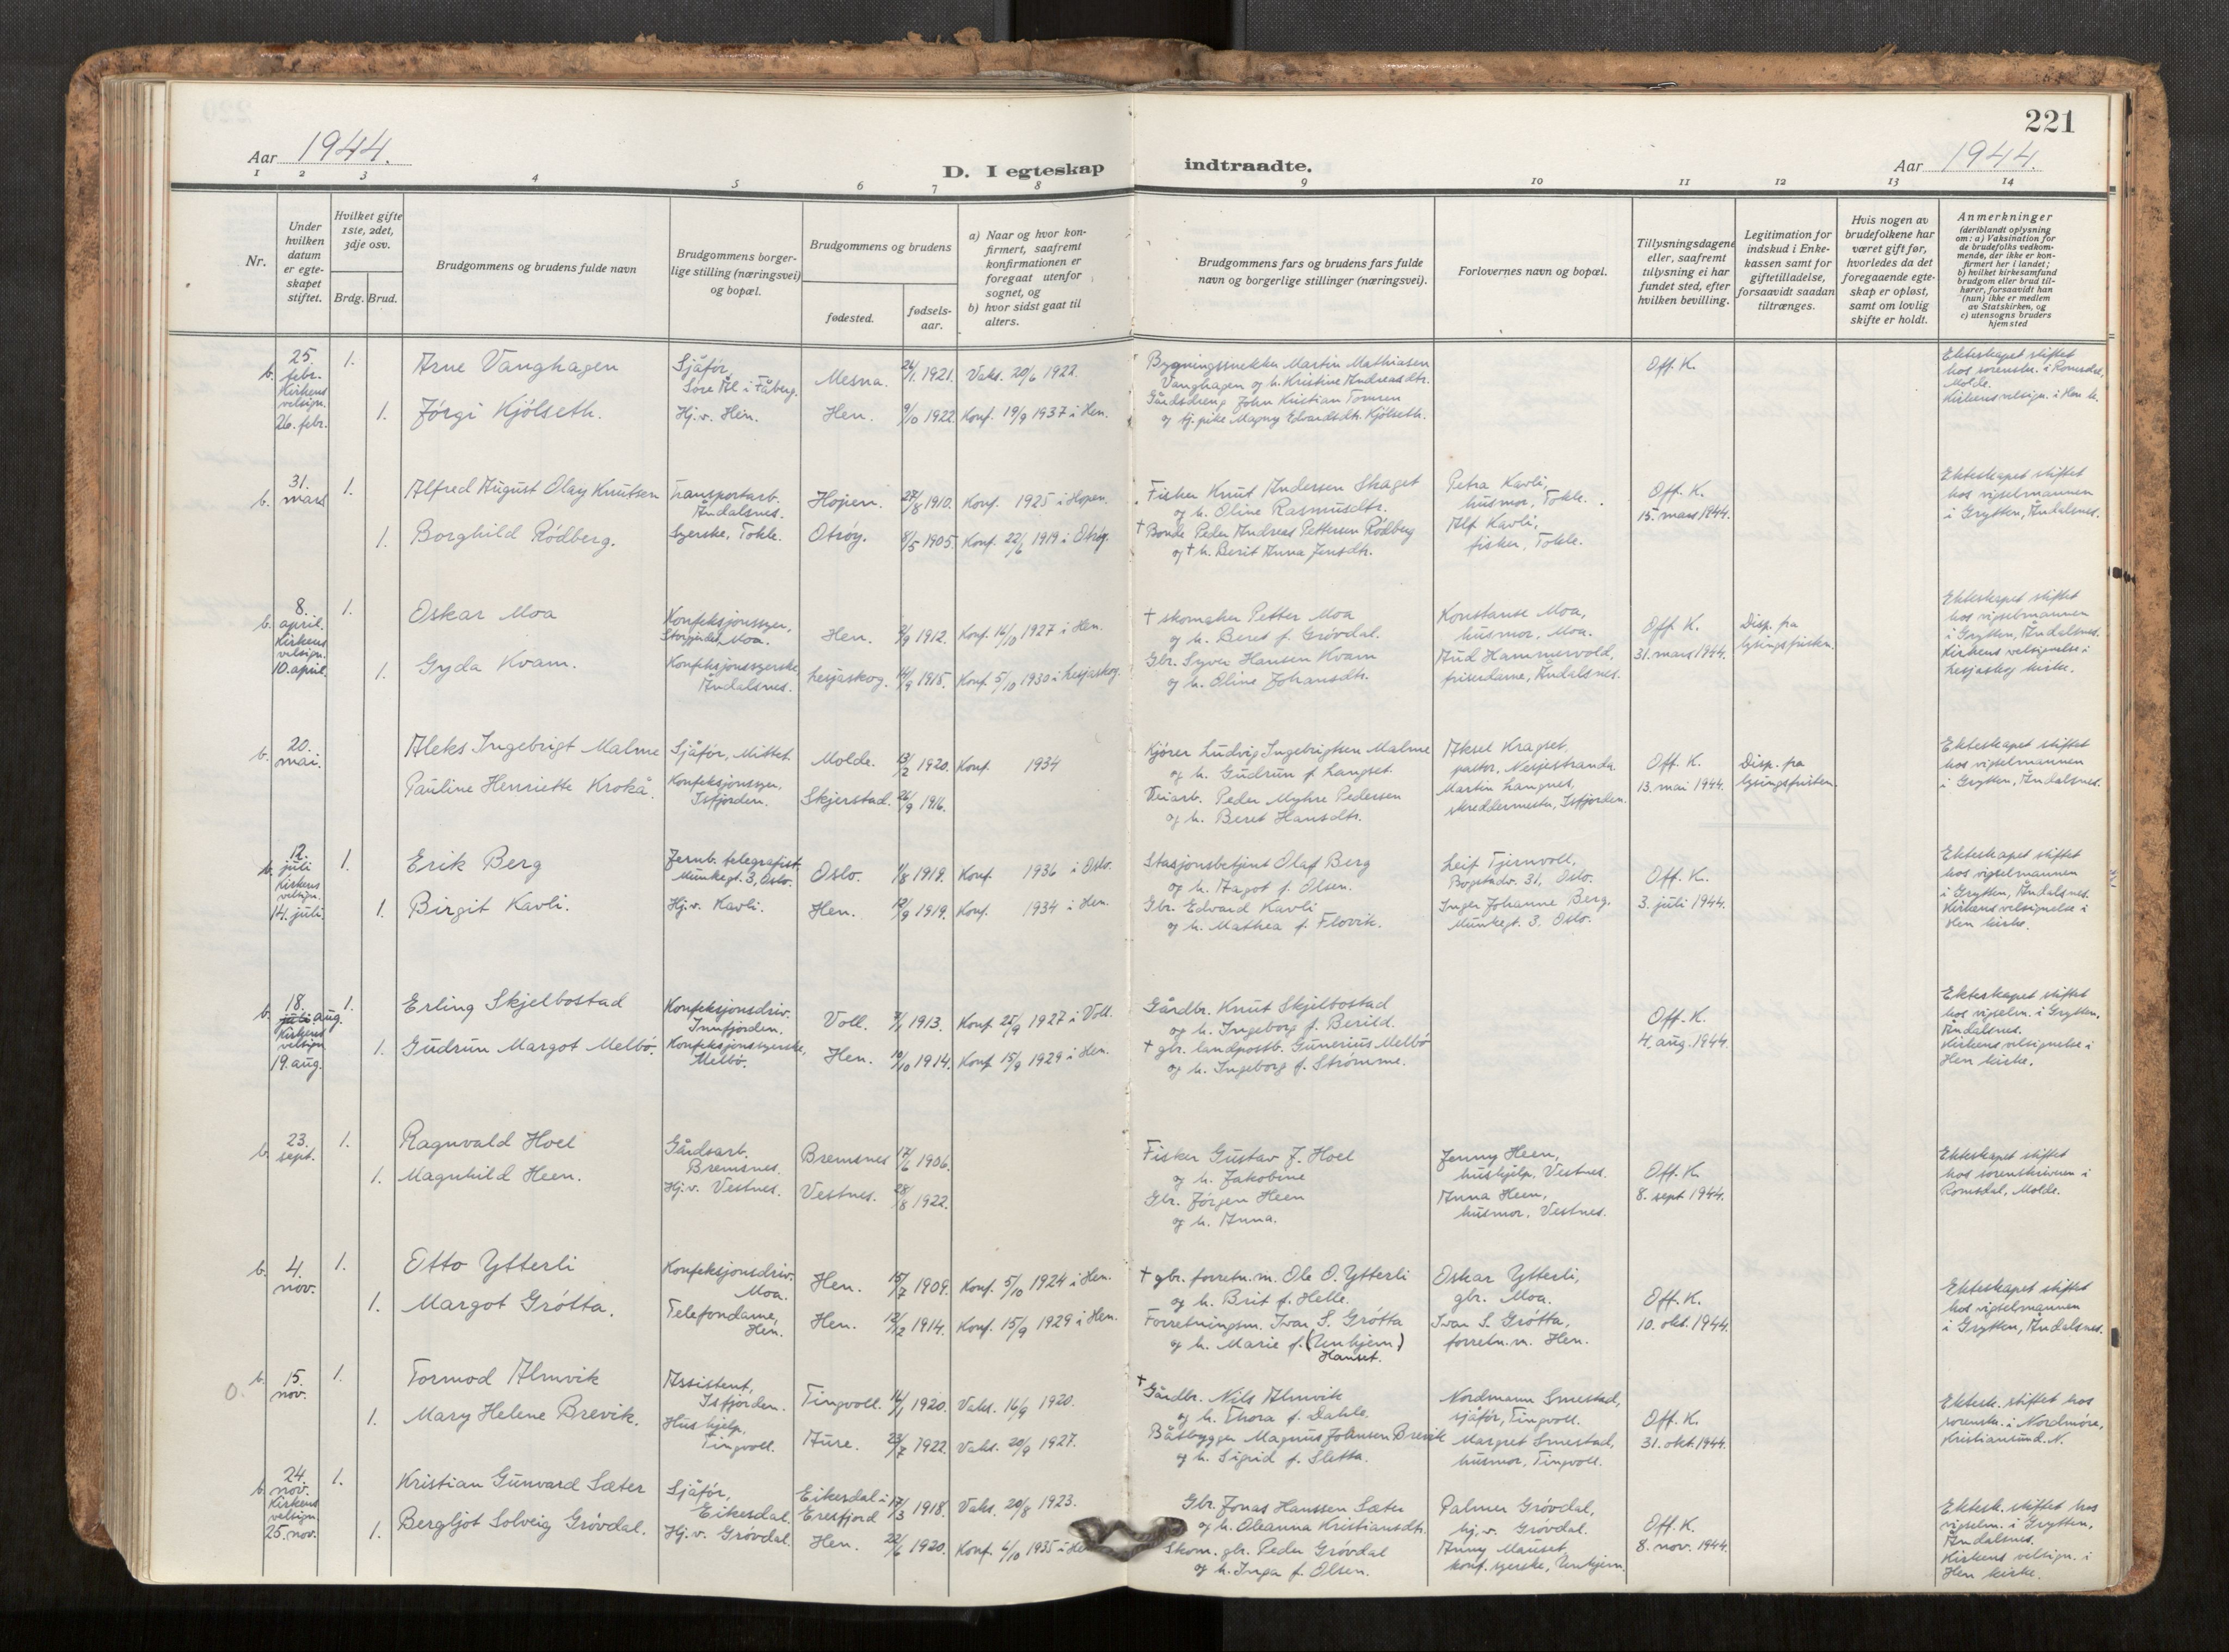 221
Aar 1944.
D. I egteskap indtraadte.
Aar 1944.
1 2 3 4 5 6 7 8 9 10 11 12 13 14
Nr.
Under hvilken datum er egte-skapet stiftet.
Hvilket gifte 1ste, 2det, 3dje osv.
Brdg. Brud.
Brudgommens og brudens fulde navn
Brudgommens borger-lige stilling (næringsvei) og bopæl.
Brudgommens og brudens
fødested.
fødsels-aar.
a) Naar og hvor kon-firmert, saafremt konfirmationen er foregaat utenfor sognet, og
b) hvor sidst gaat til alters.
Brudgommens fars og brudens fars fulde navn og borgerlige stillinger (næringsvei).
Forlovernes navn og bopæl.
Tillysningsdagene eller, saafremt tillysning ei har fundet sted, efter hvilken bevilling.
Legitimation for indskud i Enke-kassen samt for giftetilladelse, forsaavidt saadan tiltrænges.
Hvis nogen av brudefolkene har været gift før, hvorledes da det foregaaende egte-skap er opløst, samt om lovlig skifte er holdt.
Anmerkninger (deriblandt oplysning om: a) Vaksination for de brudefolks vedkom-mende, der ikke er kon-firmert her i landet; b) hvilket kirkesamfund brudgom eller brud til-hører, forsaavidt han (hun) ikke er medlem av Statskirken, og c) utensogns bruders hjemsted
b. 25. febr. Kirkens velsign. 26. febr.
1. Arne Vanghagen
Sjåfór, Söre Ål i Fåberg.
Mesna. 26/1 1921. Vaks. 20/6 1922.
Bygningssnekker Martin Mathiasen
Vanghagen og h. Kristine Andreasdtr.
Off. K.
Ekteskapet stiftet
hos sorenskr. i Romsdal,
Molde.
Kirkens velsign. i Hen k.
1. Jórgi Kjólseth.
Hj.v. Hen.
Hen. 9/10 1922. Konf. 19/9 1937 i Hen.
Gårdsdreng John Kristian Tomren
og tj. pike Magny Edvardsdtr. Kjólseth.
b. 31. mars
1. Alfred August Olay Knutsen
Transportarb. Åndalsnes.
Hopen. 27/8 1910. Konf. 1925 i Hopen.
Fisker Knut Andersen Skaget
og h. Oline Rasmusdtr.
Petra Kavli,
husmor, Tokle.
Off. K.
15. mars 1944.
Ekteskapet stiftet
hos vigselmannen
i Grytten, Åndalsnes.
1. Borghild Ródberg.
Syerske, Tokle.
Otróy. 8/5 1905. Konf. 22/6 1919 i Otróy.
† Bonde Peder Andreas Pettersen Ródberg
og † h. Berit Anna Jensdtr.
Alf Kavli,
fisker, Tokle.
b. 8. april. Kirkens velsign. 10. april.
1. Oskar Moa
Konfeksjonssyer, Moa.
Hen. 2/9 1912. Konf. 16/10 1927 i Hen.
† skomaker Petter Moa
og h. Beret f. Gróvdal.
Konstanse Moa,
husmor, Moa.
Off. K.
31. mars 1944.
Disp. fra
lysingsfristen.
Ekteskapet stiftet
hos vigselmannen
i Grytten, Åndalsnes.
Kirkens velsignelse i
Lesjaskog kirke.
1. Gyda Kvam.
Konfeksjonssyerske, Åndalsnes.
Lesjaskog. 14/9 1915. Konf. 5/10 1930 i Lesjaskog.
Gbr. Syver Hansen Kvam
og h. Oline Johansdtr.
Aud Hammervold,
friserdame, Åndalsnes.
b. 20. mai.
Aleks Ingebrigt Malme
Sjåfór, Mittet.
Molde. 13/2 1920. Konf. 1934
Kjórer Ludvig Ingebrigtsen Malme
og h. Gudrun f. Langset.
Aksel Kragset,
pastor, Nesjestranda
Off. K.
13. mai 1944.
Disp. fra
lysingsfristen.
Ekteskapet stiftet
hos vigselmannen
i Grytten, Åndalsnes.
Pauline Henriette Krokå.
Konfeksjonssyer, Isfjorden.
Skjerstad. 26/9 1916.
Veiarb. Peder Myhre Pedersen
og h. Beret Hansdtr.
Martin Langnes,
skreddermester, Isfjorden.
b. 12. juli Kirkens velsign. 14. juli.
1. Erik Berg
Jernb. telegrafist Munkegt. 3, Oslo.
Oslo. 1/8 1919. Konf. 1936 i Oslo.
Stasjonsbetjent Olaf Berg
og h. Aagot f. Olsen.
Leif Tjernvoll,
Bogstadv. 31, Oslo.
Off. K.
3. juli 1944.
Ekteskapet stiftet
hos vigselmannen
i Grytten, Åndalsnes.
Kirkens velsignelse i
Hen kirke.
1. Birgit Kavli.
Hj.v. Kavli.
Hen. 12/9 1919. Konf. 1934 i Hen.
Gbr. Edvard Kavli
og h. Mathea f. Flovik.
Inger Johanne Berg,
Munkegt. 3, Oslo.
b. 18. juli aug. Kirkens velsign. 19. aug.
1. Erling Skjelbostad
Konfeksjonsdriv. Innfjorden.
Voll. 7/1 1913. Konf. 25/9 1927 i Voll.
Gårdbr. Knut Skjelbostad
og h. Ingeborg f. Berild.
Off. K.
4. aug. 1944.
Ekteskapet stiftet
hos vigselm. i Grytten,
Åndalsnes.
Kirkens velsignelse i
Hen kirke.
1. Gudrun Margot Melbó.
Konfeksjonssyerske, Melbó.
Hen. 10/10 1914. Konf. 15/9 1929 i Hen.
† gbr. landpostb. Gunerius Melbó
og h. Ingeborg f. Strómme.
b. 23. sept.
1. Ragnvald Hoel
Gårdsarb. Bremsnes.
Bremsnes 17/6 1906.
Fisker Gustav J. Hoel
og h. Jakobine
Jenny Heen,
hushjelp, Vestnes.
Off. K.
8. sept 1944.
Ekteskapet stiftet
hos sorenskriveren i
Romsdal, Molde.
1. Magnhild Heen.
Hj.v. Vestnes.
Vestnes. 28/8 1922.
Gbr. Jórgen Heen
og h. Anna.
Anna Heen,
husmor, Vestnes.
b. 4. nov.
1. Otto Ytterli
Konfeksjonsdriv. Moa.
Hen. 15/7 1909. Konf. 5/10 1924 i Hen.
† gbr. forretn.m. Ole O. Ytterli
og h. Brit f. Helle.
Oskar Ytterli,
gbr. Moa.
Off. K.
10. okt. 1944.
Ekteskapet stiftet
hos vigselmannen
i Grytten, Åndalsnes.
1. Margot Grótta.
Telefondame, Hen.
Hen. 12/12 1914. Konf. 15/9 1929 i Hen.
Forretningsm. Ivar S. Grótta
og h. Marie f. (Unhjem)
Hanset.
Ivar S. Grótta,
forretn.m. Hen.
O. b. 15. nov.
1. Tormod Almvik
Assistent, Isfjorden.
Tingvoll. 16/1 1920. Vaks. 16/9 1920.
† Gårdbr. Nils Almvik
og h. Thora f. Dahle.
Nordmann Smestad,
sjåfór, Tingvoll.
Off. K.
31. okt. 1944.
Ektesk. stiftet hos
sorenskr. i Nordmóre,
Kristiansund. N.
1. Mary Helene Brevik.
Hushjelp, Tingvoll.
Aure. 23/7 1922. Vaks. 20/9 1927.
Båtbygger Magnus Johnsen Brevik
og h. Sigrid f. Sletta.
Margret Smestad,
husmor, Tingvoll.
b. 24. nov. Kirkens velsign. 25. nov.
1. Kristian Gunvard Sæter
Sjåfór, Eikesdal.
Eikesdal i Eresfjord 17/3 1918. Vaks. 20/8 1923.
Gbr. Jonas Hanssen Sæter
og h. Oleanna Kristiansdtr.
Palmer Gróvdal,
hj.v. Gróvdal.
Off. K.
8. nov. 1944.
Ektesk. stiftet hos
vigselm. i Grytten,
Åndalsnes.
Kirkens velsign. i
Hen kirke.
1. Bergljot Solveig Gróvdal.
Hj.v. Gróvdal.
Hen. 22/6 1920. Konf. 6/10 1935 i
Skom. gbr. Peder Gróvdal
og h. Inga f. Olsen.
Anny Mauset,
konf. syerske, Unhjem.